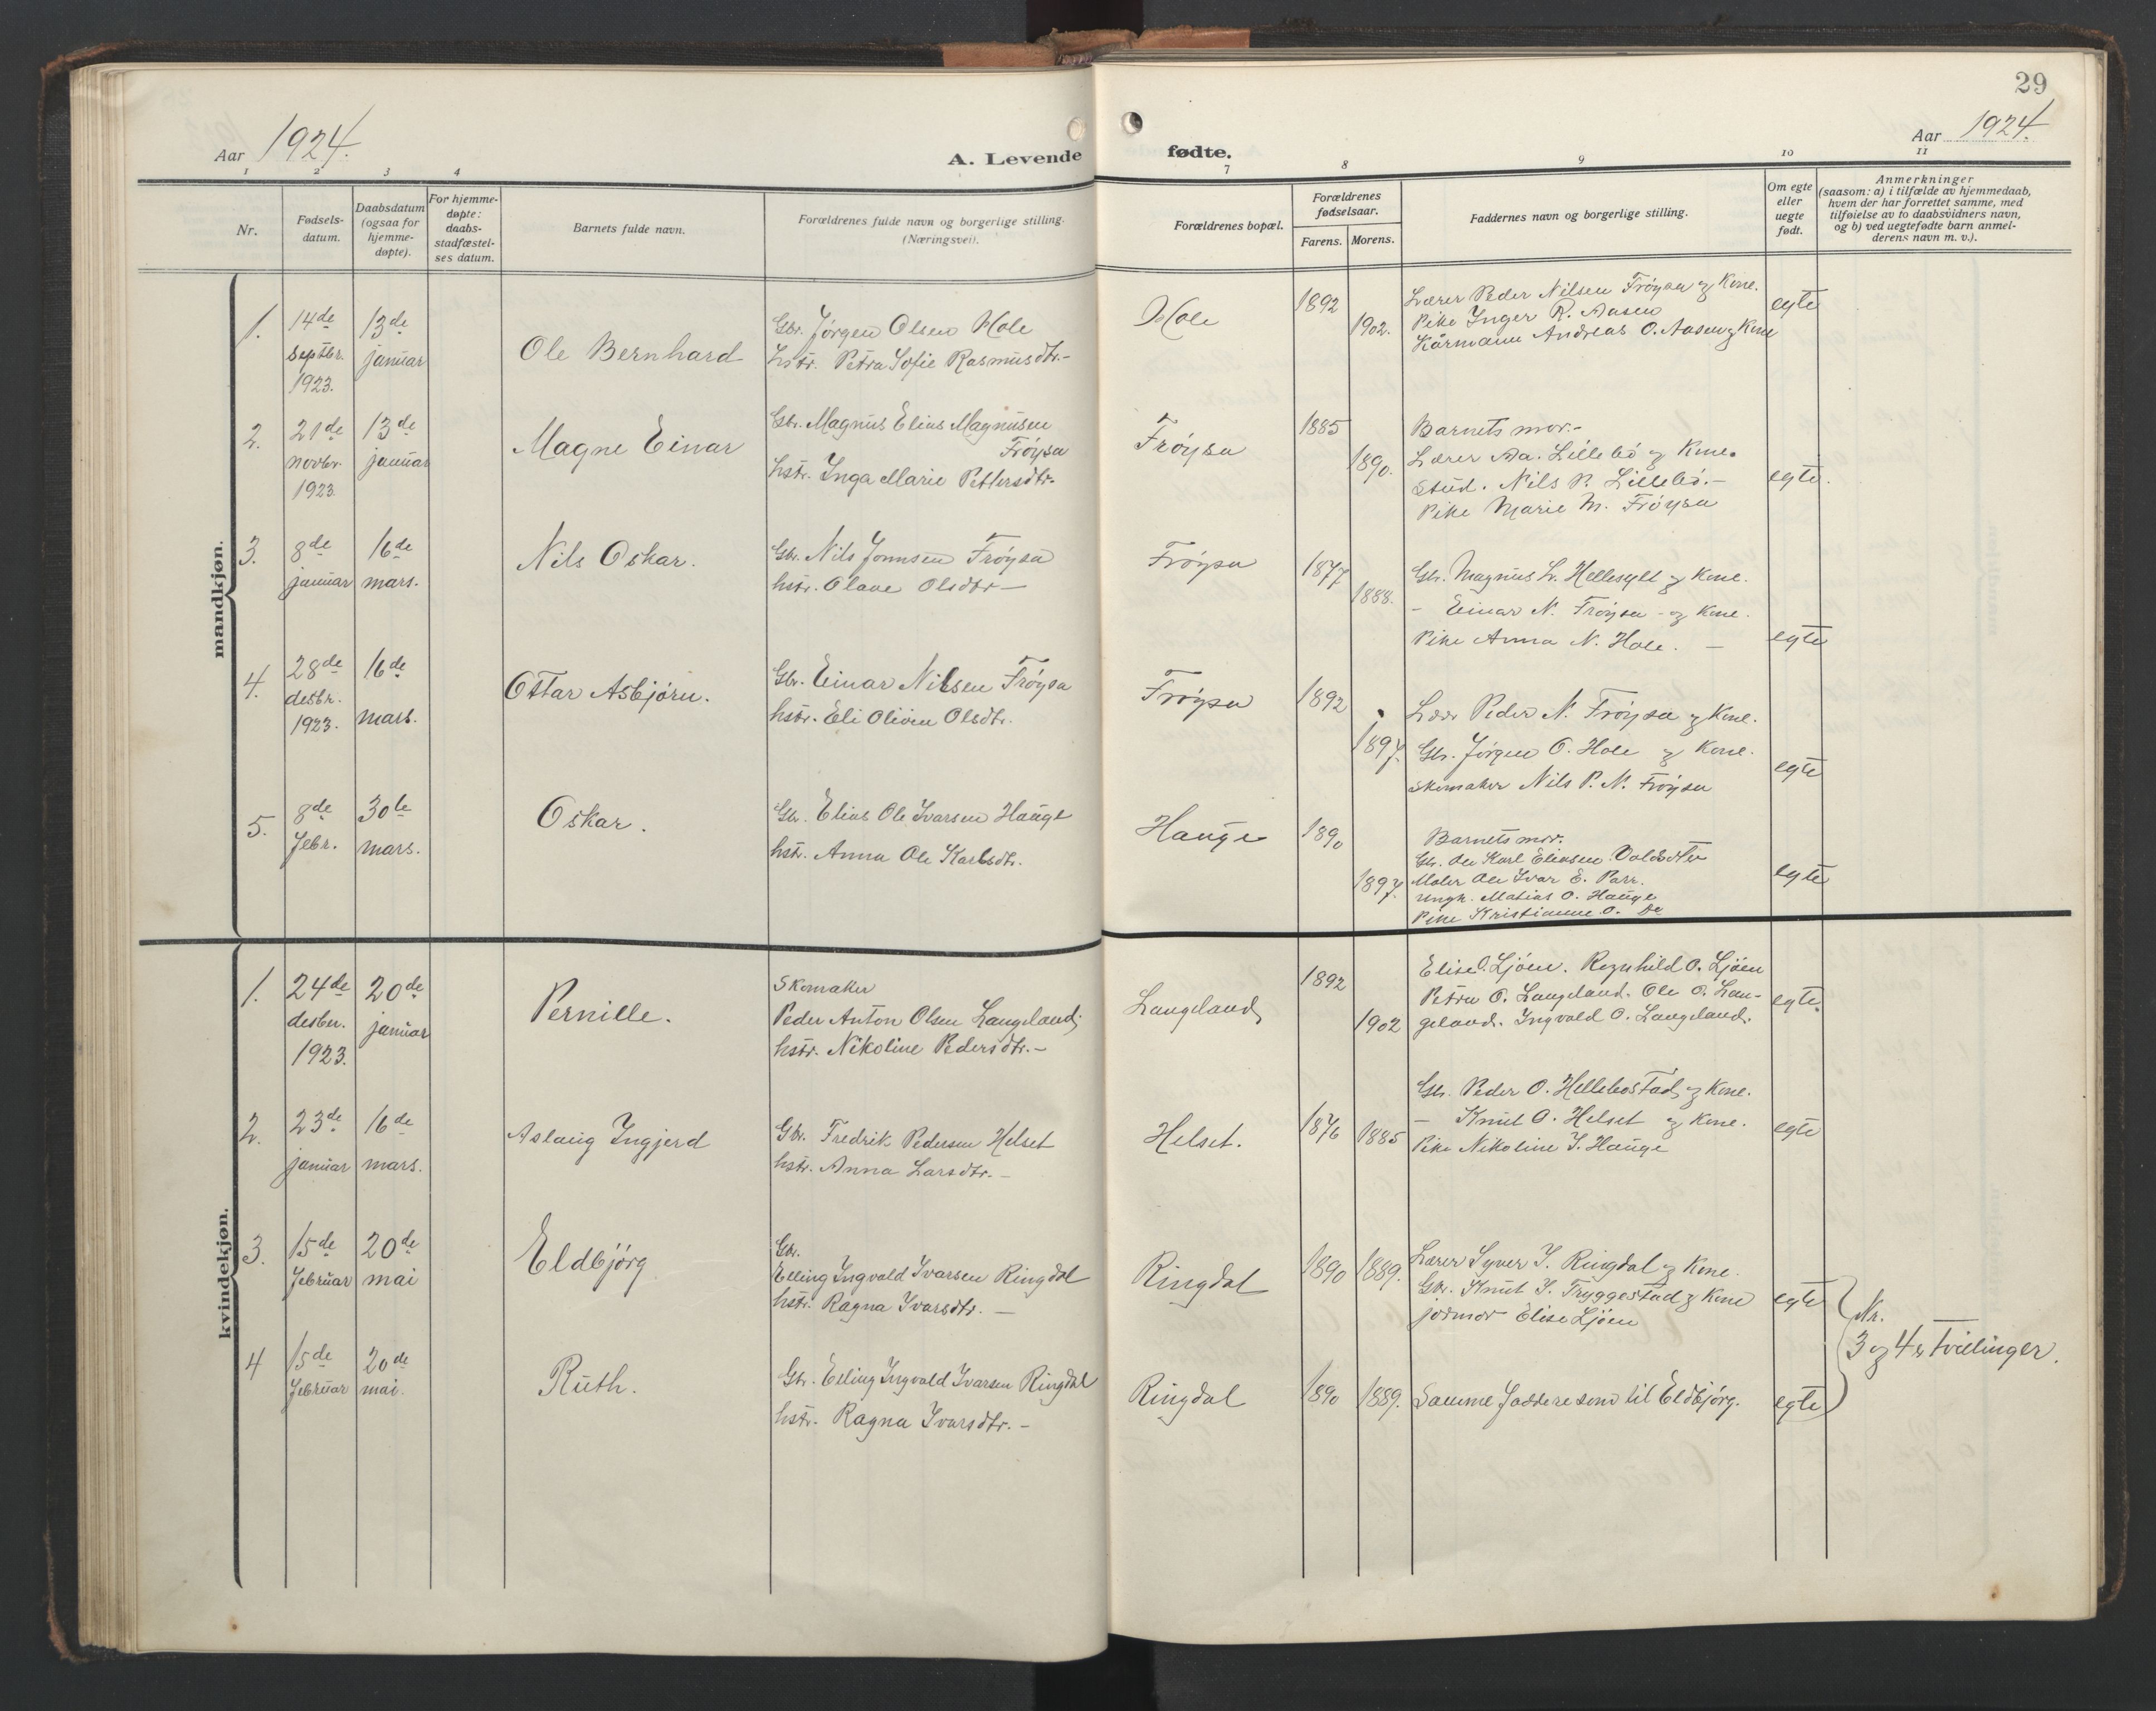 29
Aar 1924.
A. Levende
fødte.
Aar 1924.
1 2 3 4 7 8 9 10 11
Nr.
Fødsels-
datum.
Daabsdatum
(ogsaa for
hjemme-
døpte).
For hjemme-
døpte:
daabs-
stadfæstel-
ses datum.
Barnets fulde navn.
Forældrenes fulde navn og borgerlige stilling.
(Næringsvei).
Forældrenes bopæl.
Forældrenes
fødselsaar.
Farens. Morens.
Faddernes navn og borgerlige stilling.
Om egte
eller
uegte
født.
Anmerkninger
(saasom: a) i tilfælde av hjemmedaab,
hvem der har forrettet samme, med
tilføielse av to daabsvidners navn,
og b) ved uegtefødte barn anmel-
derens navn m. v.).
mandkjøn.
1.
14de
septbr.
1923.
13de
januar
Ole Bernhard
Gbr. Jørgen Olsen Hole
hstr. Petra Sofie Rasmusdtr.-
Hole
1892
1902.
Lærer Peder Nilsen Frøysa og Kone.
Pike Inger R. Aasen
Kårmann Andreas O. Aasen og Kone
egte
2.
21de
novbr.
1923.
13de
januar
Magne Einar
Gbr. Magnus Elias Magnusen
Frøysa
hstr. Inga Marie Pettersdtr.
Frøysa
1885
1890.
Barnets mor.-
Lærer Aa. Lillebø og Kone.
Stud. Nils P. Lillebø.-
Pike Marie M. Frøysa
egte.
3.
8de
januar
16de
mars.
Nils Oskar.
Gbr. Nils Jonnsen Frøysa
hstr. Olave Olsdtr-
Frøysa
1877
1888.
Gbr. Magnus L. Hellesylt og Kone.
- Einar N. Frøysa - og Kone.
Pike Anna N. Hole. -
egte
4.
28de
desbr.
1923.
16de
mars.
Ottar Asbjørn.
Gbr. Einar Nilsen Frøysa
hstr. Eli Olivia Olsdtr.
Frøysa
1892
1897.
Lærer Peder N. Frøysa og Kone.
Gbr. Jørgen O. Hole og Kone.
Skomaker Nils P. N. Frøysa
egte
5.
8de
febr.
30te
mars.
Oskar.
Gbr. Elias Ole Ivarsen Hauge
hstr. Anna Ole Karlsdtr.
Hauge
1890
1897.
Barnets mor.
Gbr. Ole Karl Eliasen
Maler Ole Ivar E.
ungk. Matias O. Hauge
Pike Kristianne O. Do
egte
kvindekjøn.
1.
24de
desbr.
1923.
20de
januar
Pernille.
Skomaker
Peder Anton Olsen Langeland,
hstr. Nikoline Pedersdtr.-
Langeland
1892
1902
Elise O. Ljøen. Ragnhild O. Ljøen
Petra O. Langeland. Ole O. Lan-
geland. Ingvald O. Langeland.
egte.
2.
23de
januar
16de
mars.
Aslaug Ingjerd
Gbr. Fredrik Pedersen Helset
hstr. Anna Larsdtr.-
Helset.
1876
1885
Gbr. Peder O. Hellebostad og Kone.
- Knut O. Helset og Kone.
Pike Nikoline I. Hauge
egte
3.
15de
februar
20de
mai
Eldbjørg
Gbr.
Elling Ingvald Ivarsen Ringdal
hstr. Ragna Ivarsdtr.-
Ringdal
1890
1889.
Lærer Syver I. Ringdal og Kone.
Gbr. Knut I. Tryggestad og Kone
jormor Elise Ljøen
egte
4
15de
februar
20de
mai.
Ruth.
Gbr. Elling Ingvald Ivarsen Ringdal
hstr. Ragna Ivarsdtr.-
Ringdal
1890
1889.
Samme faddere som til Eldbjørg.
egte
Nr.
3 og 4 er tvillinger.